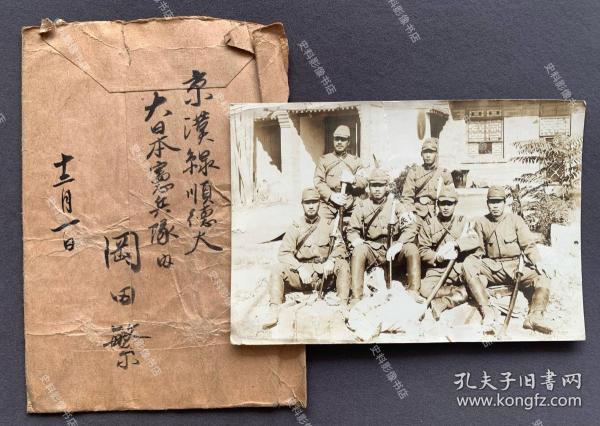 京漢線順徳大
大日本憲兵隊内
岡田繁
十二月一日
史料影像书店
孔夫子旧书网
www.kongfz.com